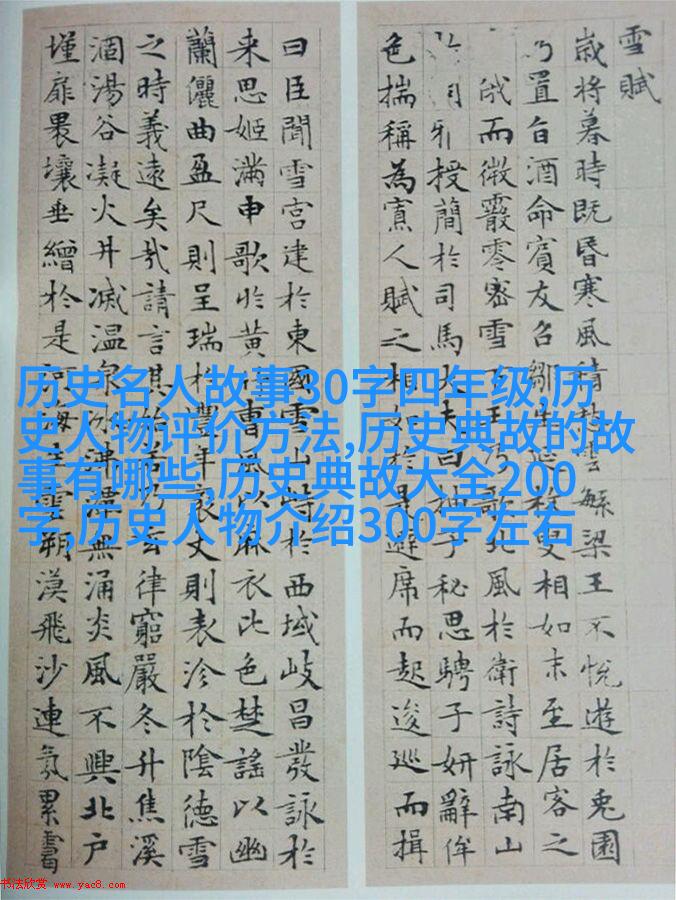 雪賦
歲將暮時既昏寒風積愁雲繁梁王不悅遊於兔園
乃置旨酒命賓友召鄒生延枚叟相如末至居客之
俄而微霰零密雪下王乃歌北風於衛詩詠南山
雅授簡於司馬大夫曰抽子秘思騁子妍辭侔
色揣稱為寡人賦之相如於是避席而起逡巡而揖
曰臣聞雪宮建於東國雪山峙於西域岐昌發詠於
来思姬滿申歌於黃曹風以麻衣比色楚謠以幽
蘭儷曲盈尺則呈瑞於豐年袤丈則表沴於陰德雪
之時義遠矣哉請言其始若乃玄律窮嚴冬升焦溪
涸湯谷凝火井滅温泉冰沸潭無涌炎風不興北户
墐扉壤垂繒於是河海生雲朔漠飛沙連氛累靄
历史名人故事30字四年级,历
史人物评价方法,历史典故的故
事有哪些,历史典故大全200
字,历史人物介绍300字左右
书法欣赏 www.yac8.com